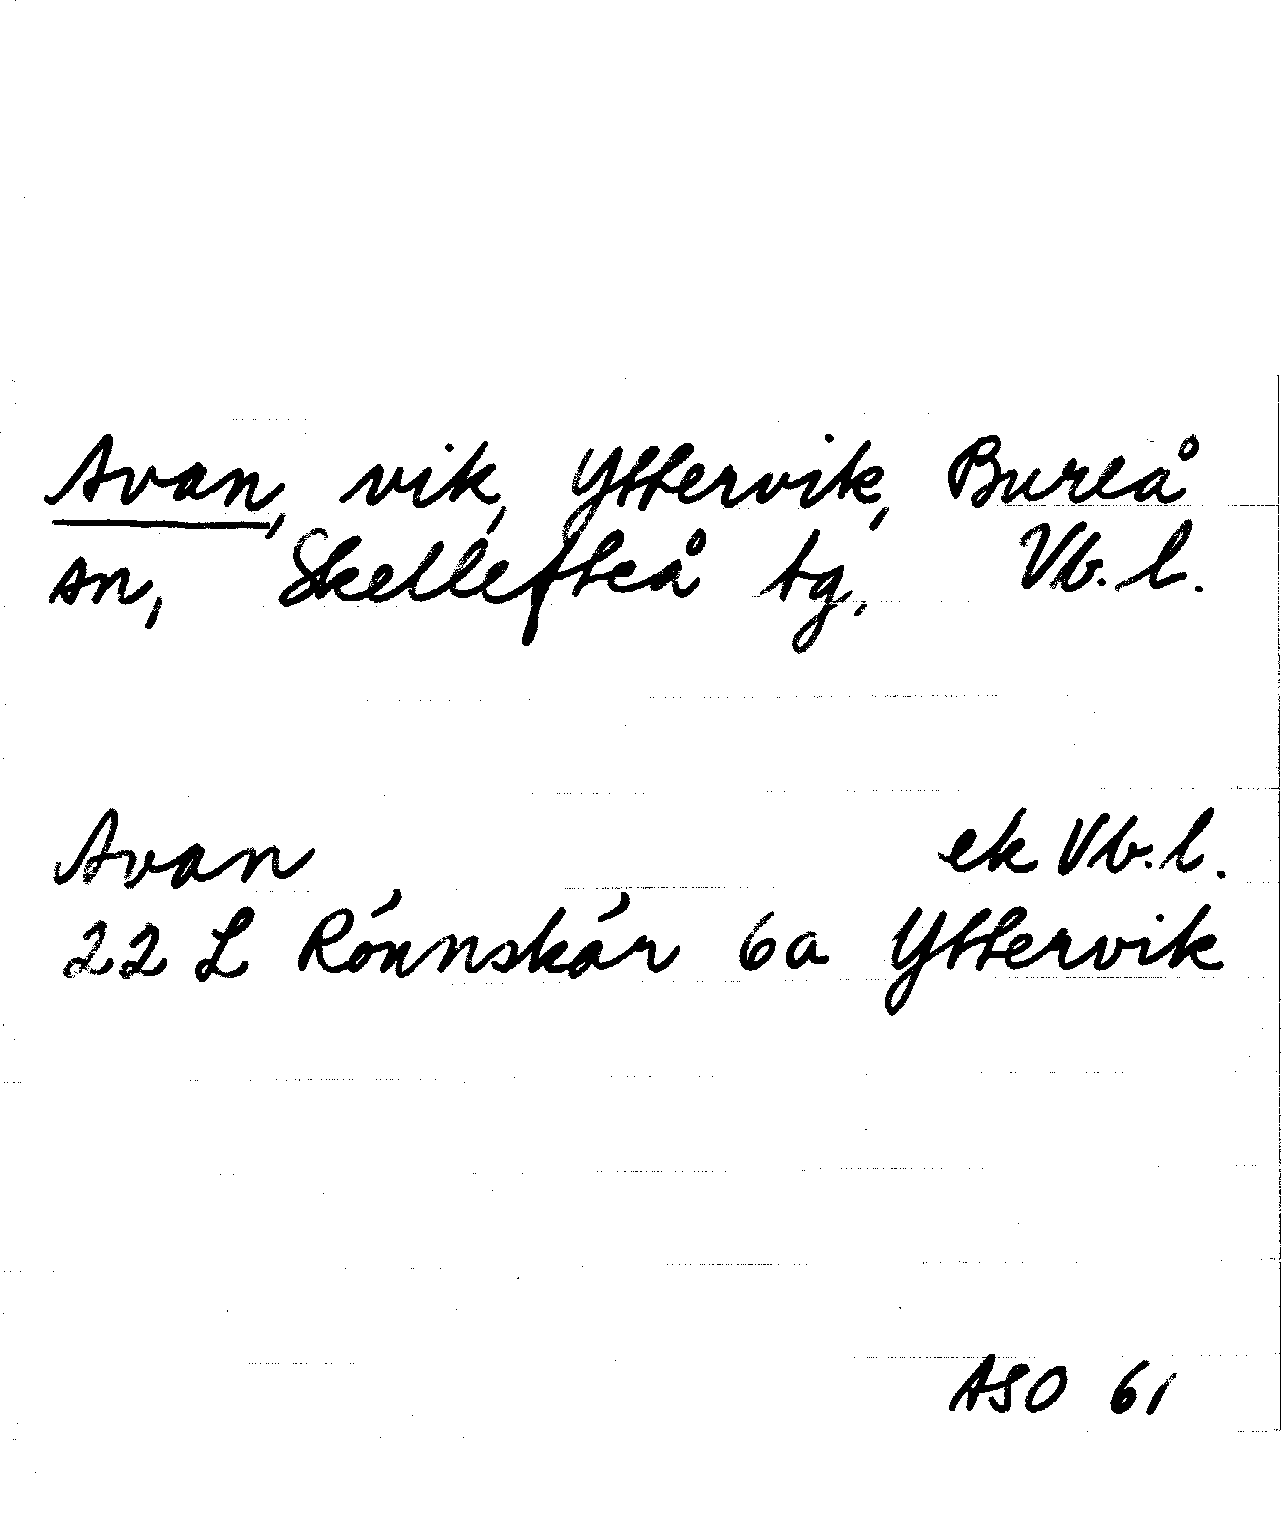 Avan, vik, Yttervik, Bureå
sn, Skellefteå tg, Vb. l.
Avan ek Vb. l.
22 L Rönnskär 6a Yttervik
ASO 61